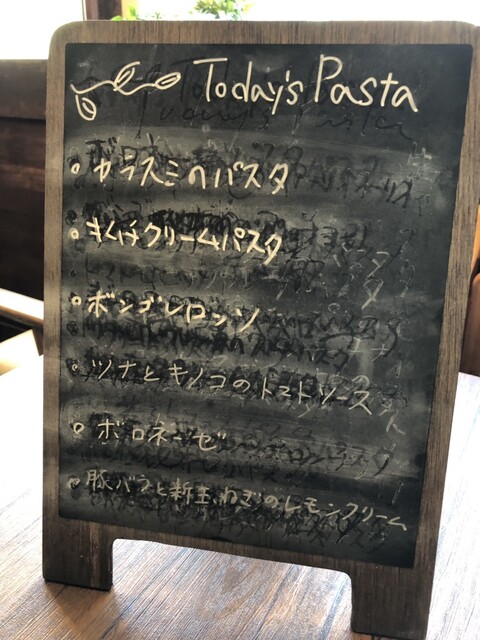 Today's Pasta
• カラスミのパスタ
• キムチクリームパスタ
• ボンゴレロッソ
• ツナとキノコのトマトソース
• ボロネーゼ
• 豚バラと新玉ねぎのレモンクリーム